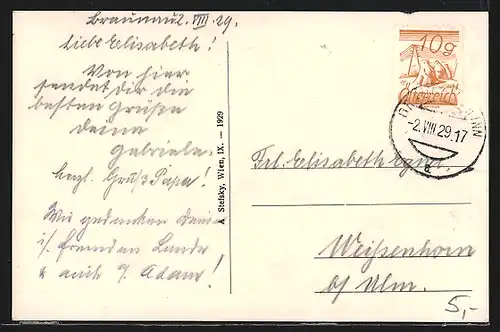 Braunau 2. VIII 29.
Liebe Elisabeth!
Von hier
sendet dir die
besten Grüße
deine
Gabriele.
herzl. Gruß Papa!
Wir gedenken Deiner
i/. fremden Lande
& auch 
A Stefsky, Wien, IX. — 1929
10g
Österreich
INN
-2.VIII 29.17
a
Frl. Elisabeth
Weissenhorn
b/ Ulm.
5,-